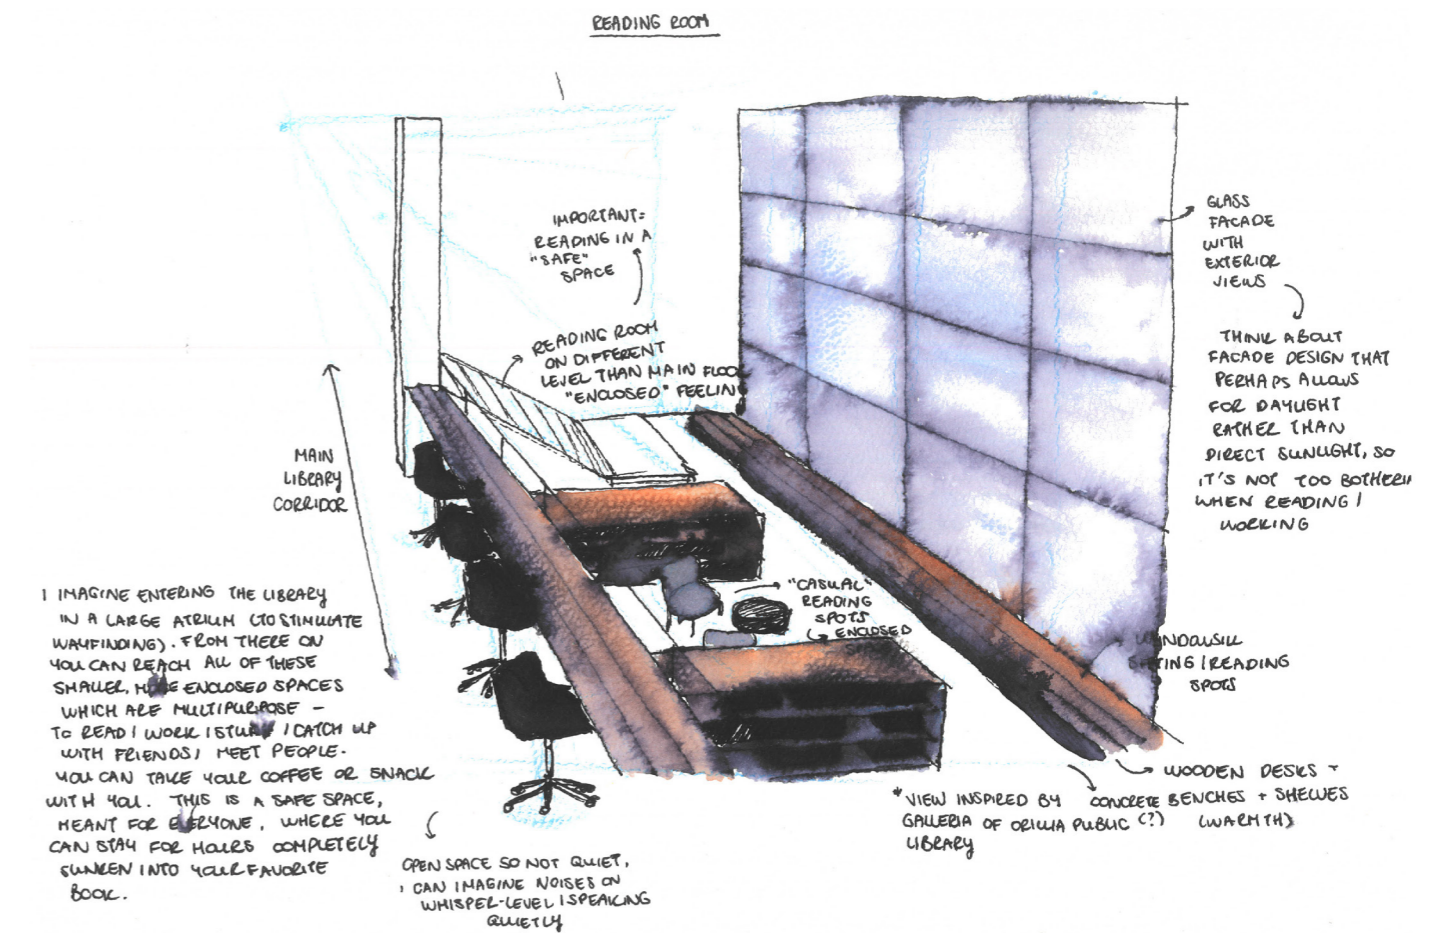 READING ROOM
IMPORTANT:
READING IN A
"SAFE"
SPACE
READING ROOM
ON DIFFERENT
LEVEL THAN MAIN FLOO
"ENCLOSED" FEELIN
GLASS
FACADE
WITH
EXTERIOR
VIEWS
THINK ABOUT
FACADE DESIGN THAT
PERHAPS ALLOWS
FOR DAYLIGHT
RATHER THAN
DIRECT SUNLIGHT, SO
IT'S NOT TOO BOTHERI
WHEN READING /
WORKING
MAIN
LIBRARY
CORRIDOR
"CASUAL"
READING
SPOTS
ENCLOSED
WINDOWSILL
SITTING / READING
SPOTS
I IMAGINE ENTERING THE LIBRARY
IN A LARGE ATRIUM (TO STIMULATE
WAYFINDING). FROM THERE ON
YOU CAN REACH ALL OF THESE
SMALLER, MORE ENCLOSED SPACES
WHICH ARE MULTIPURPOSE –
TO READ / WORK / STUDY / CATCH UP
WITH FRIENDS / MEET PEOPLE.
YOU CAN TAKE YOUR COFFEE OR SNACK
WITH YOU. THIS IS A SAFE SPACE,
MEANT FOR EVERYONE, WHERE YOU
CAN STAY FOR HOURS COMPLETELY
SUNKEN INTO YOUR FAVORITE
BOOK.
OPEN SPACE SO NOT QUIET,
I CAN IMAGINE NOISES ON
WHISPER-LEVEL / SPEAKING
QUIETLY
*VIEW INSPIRED BY
GALLERIA OF ORILLIA PUBLIC
LIBRARY
CONCRETE
(?)
WOODEN DESKS +
BENCHES + SHELVES
(WARMTH)